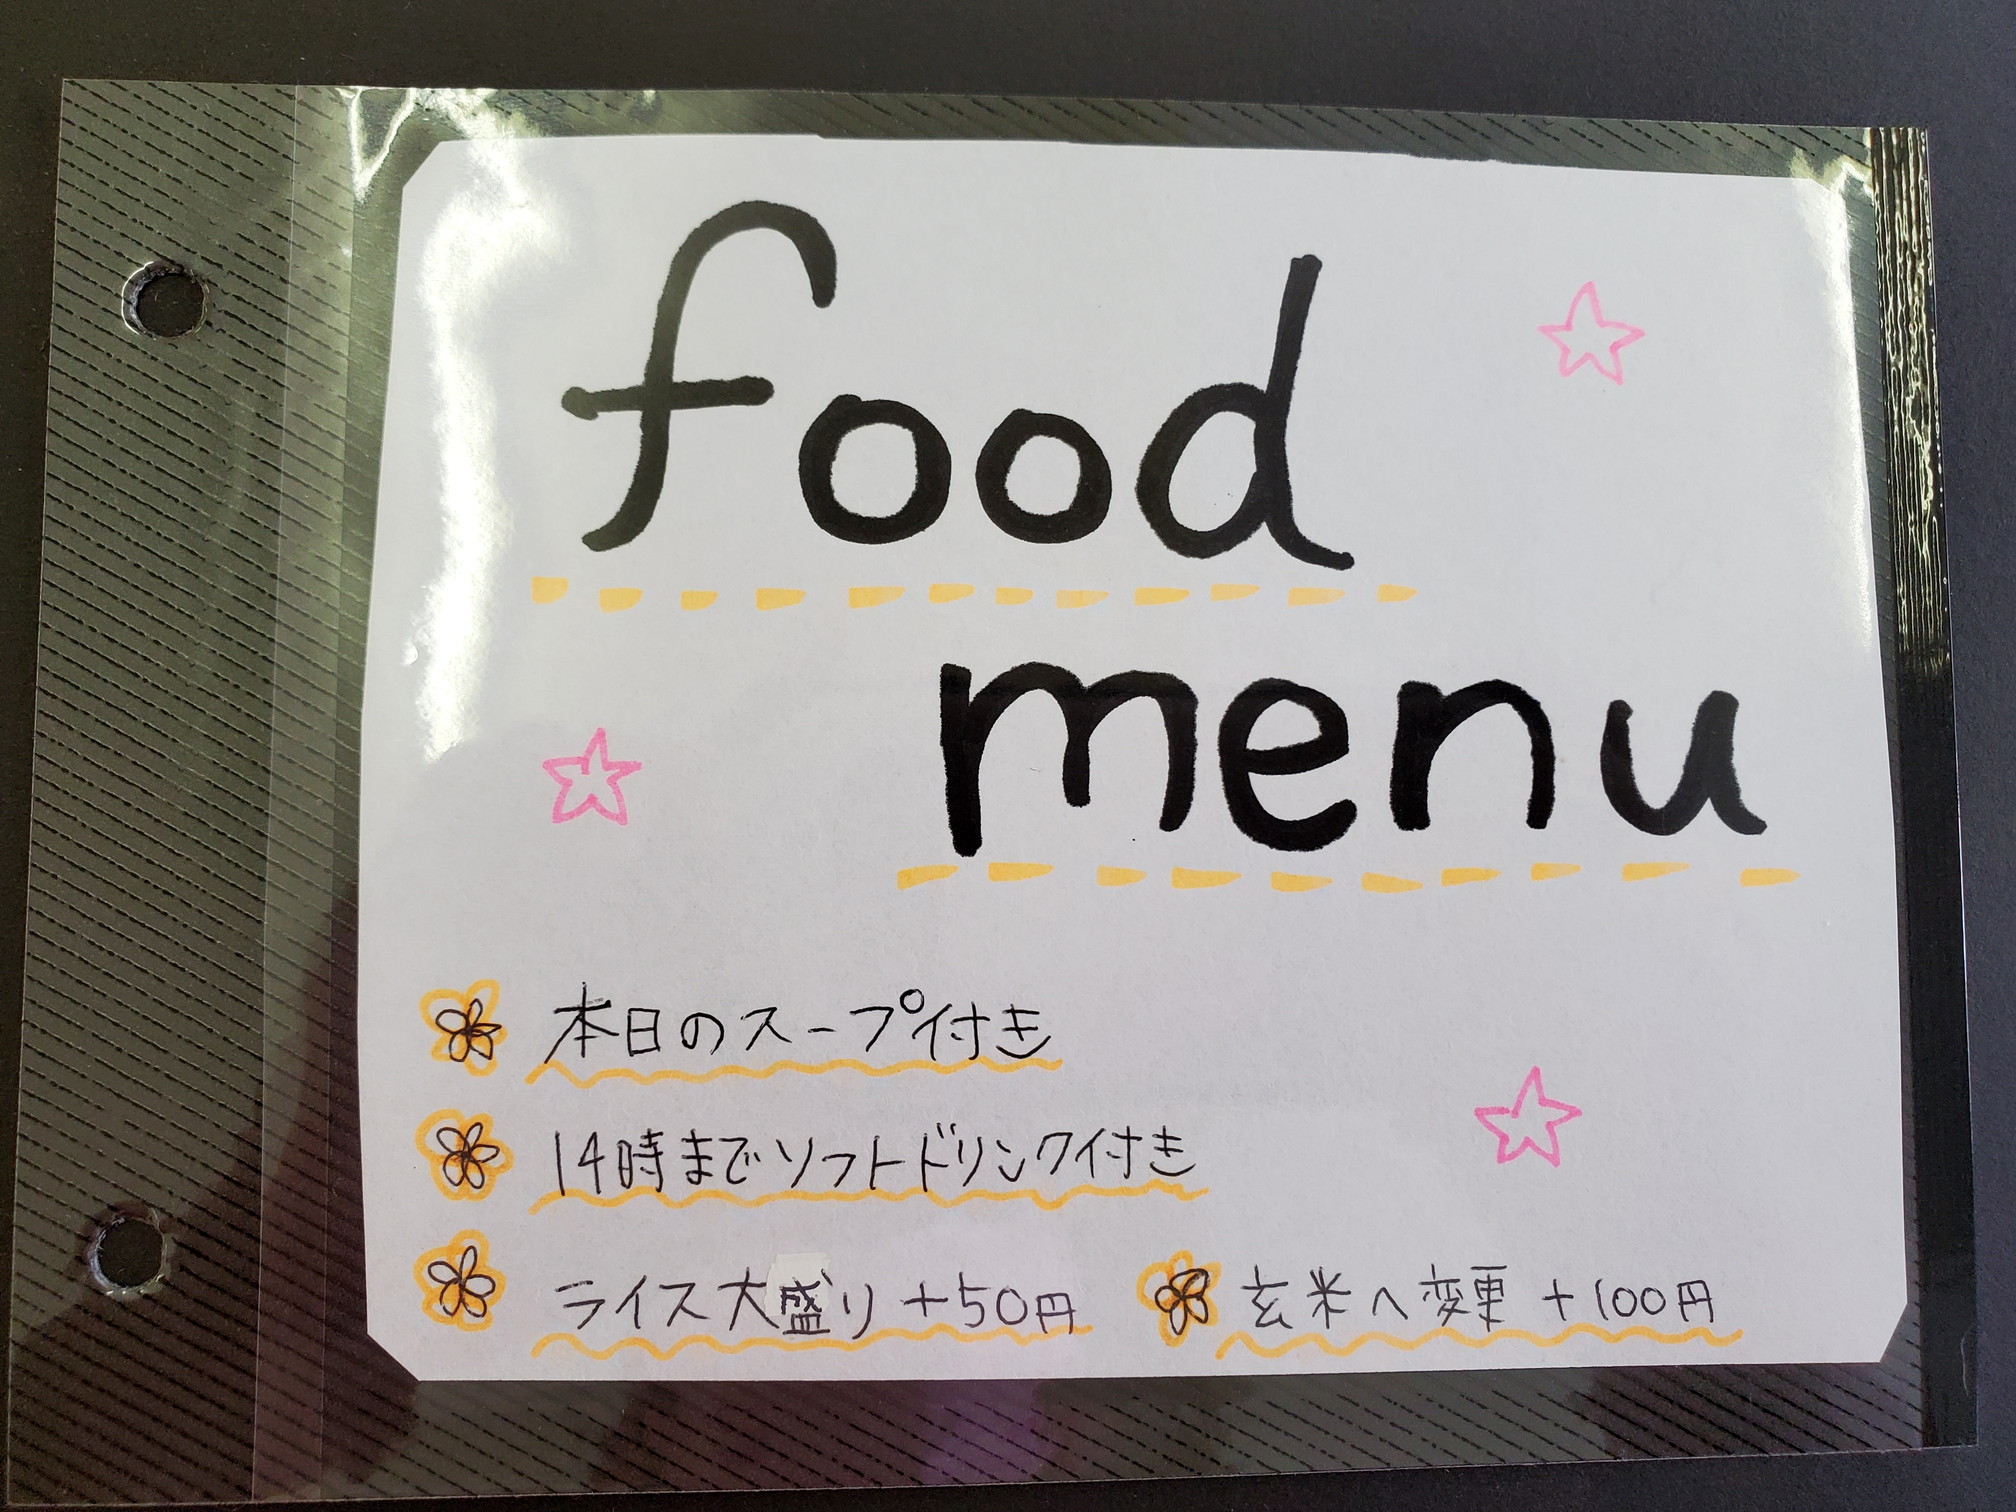 food
menu
本日のスープ付き
14時までソフトドリンク付き
ライス大盛り +50円 玄米へ変更 +100円